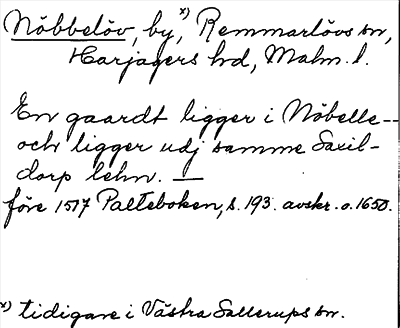 Nöbbelöv, by, x) Remmarlövs sn,
Harjagers hd, Malm. l.
En gaardt ligger i Nöbelle--
och ligger udj samme Saxil-
dorp lehn. —
före 1517 Palteboken, s. 193. avskr. o. 1650.
x) tidigare i Västra Sallerups sn.